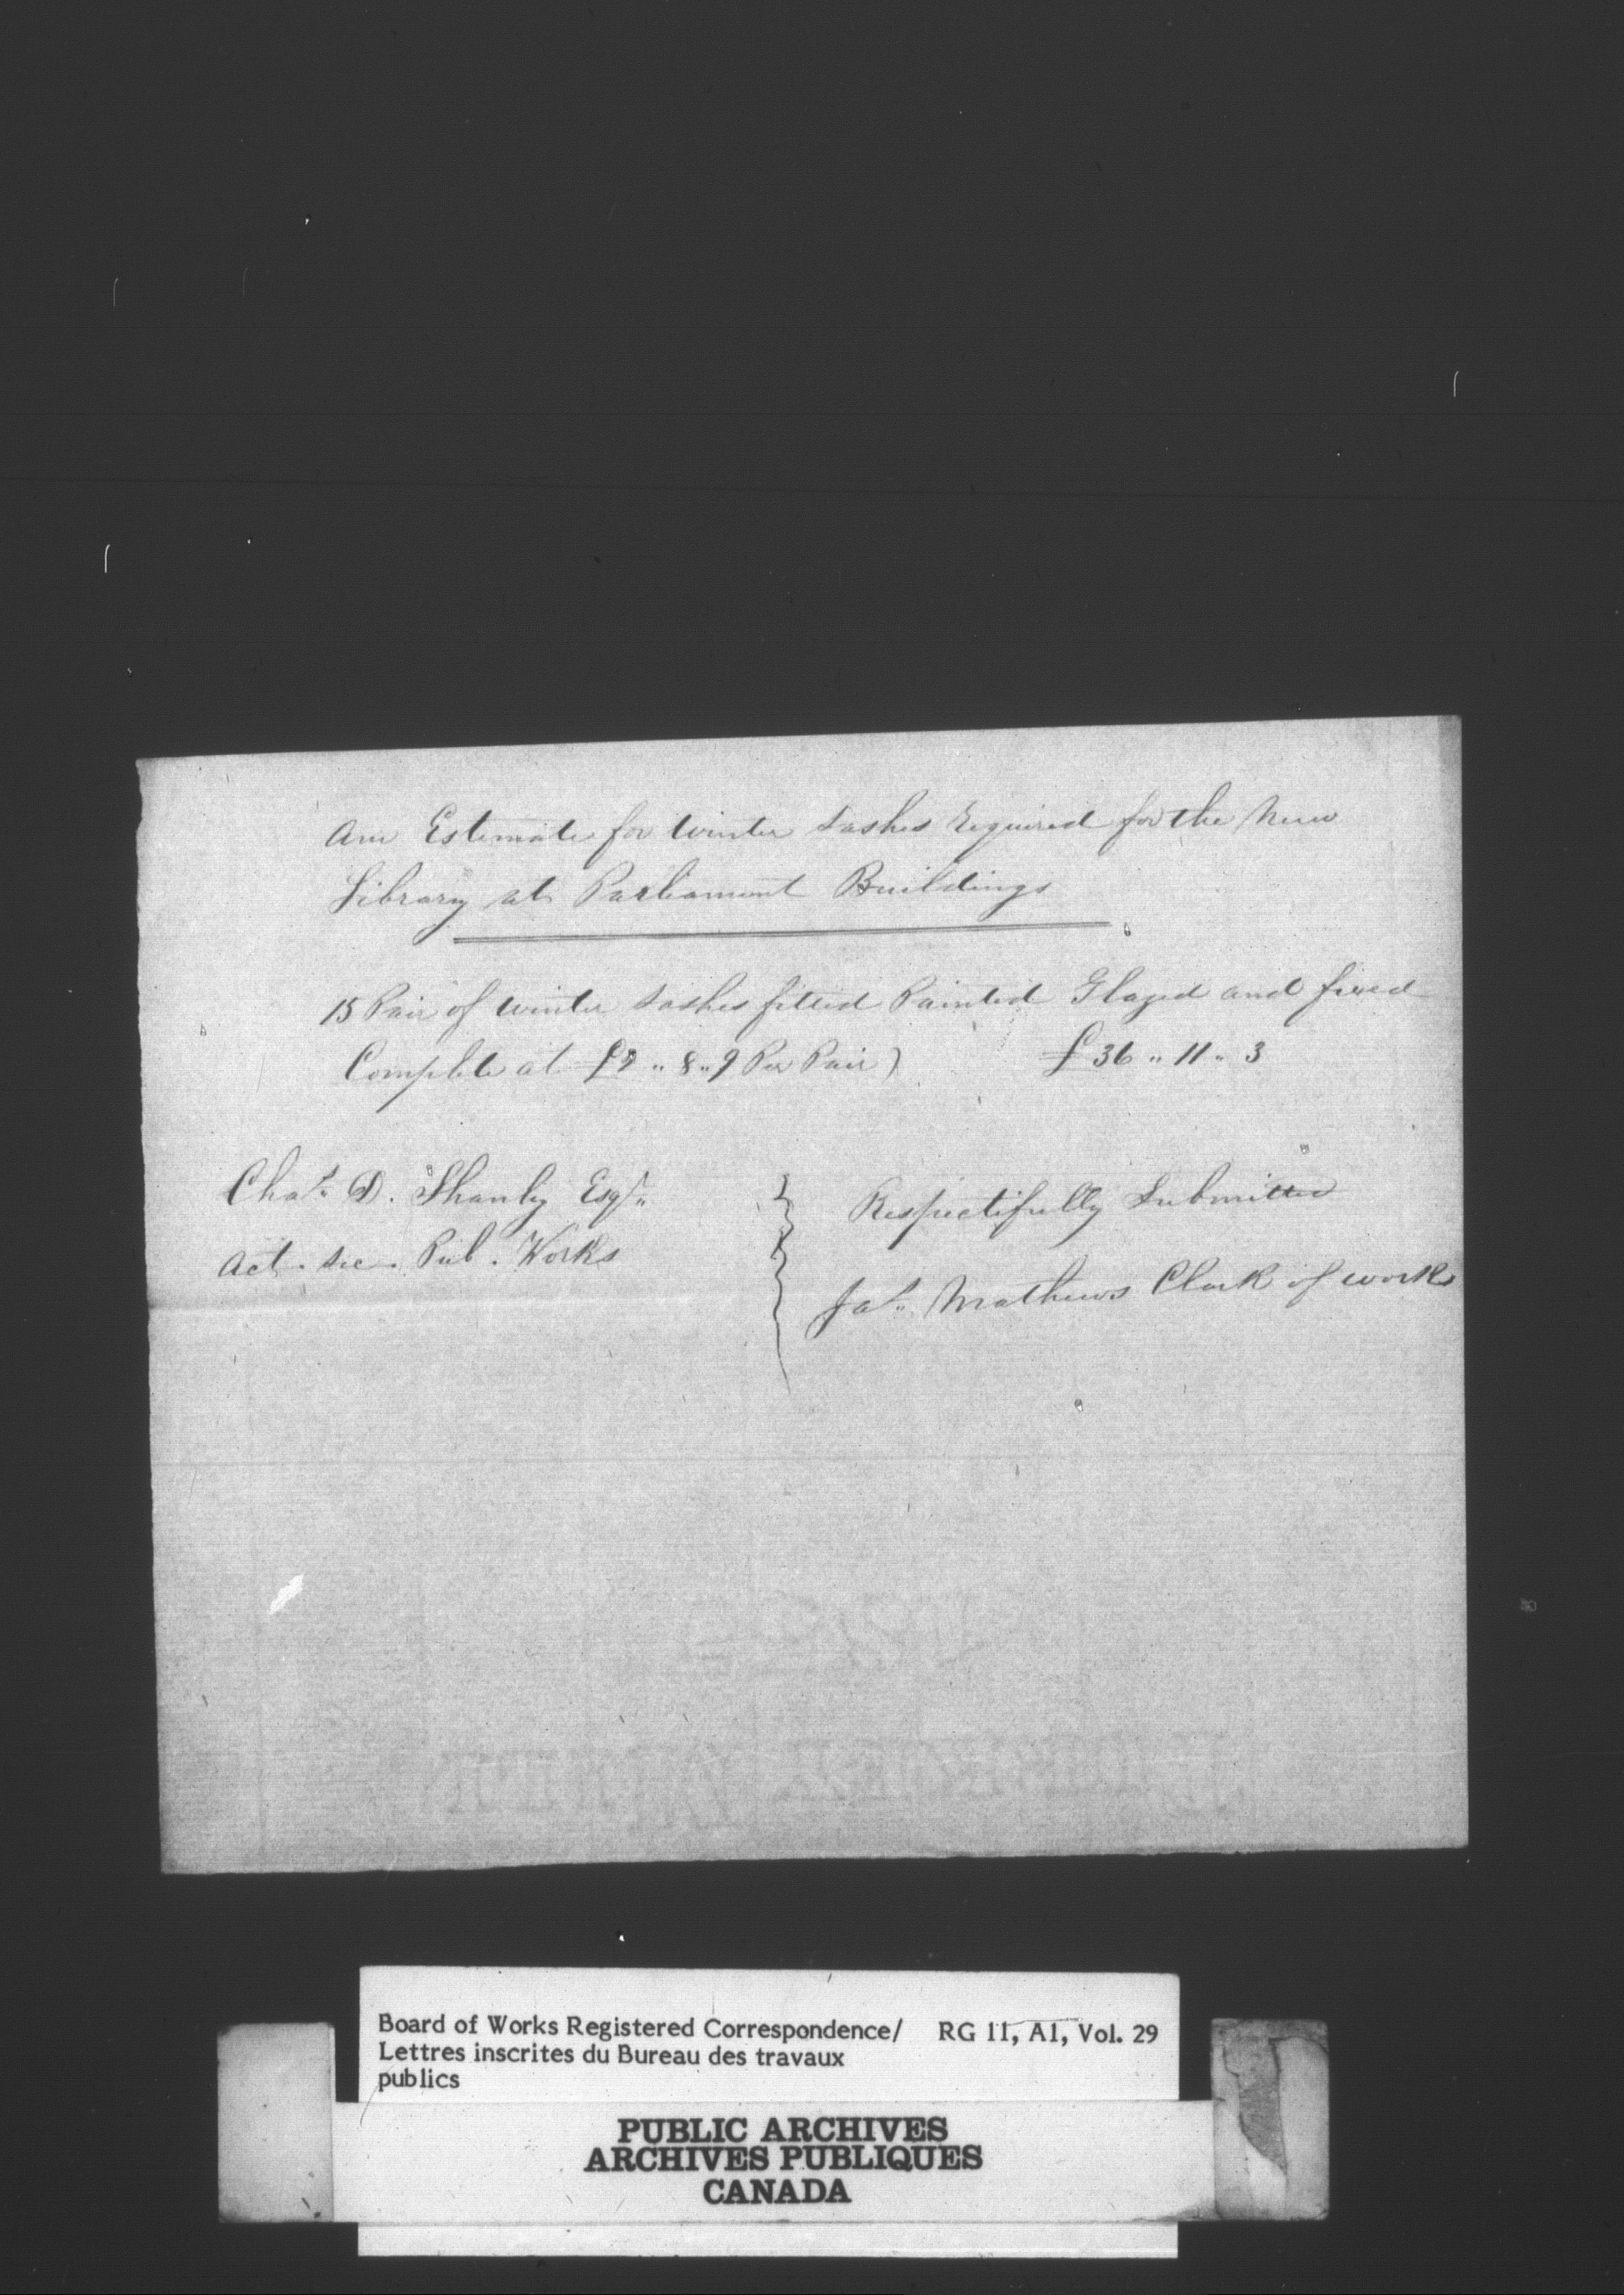 An Estimate for Winter Sashes Required for the New
Library at Parliament Buildings
15 Pair of Winter Sashes fitted Painted Glazed and fixed
Complete at £2 " 8 " 9 Per Pair) £36 " 11 " 3
Chas. D. Shanly Esqr.
Act. Sec. Pub. Works
Respectifully Submitted
Jas. Mathews Clark of works
Board of Works Registered Correspondence/ RG 11, A1, Vol. 29
Lettres inscrites du Bureau des travaux
publics
PUBLIC ARCHIVES
ARCHIVES PUBLIQUES
CANADA